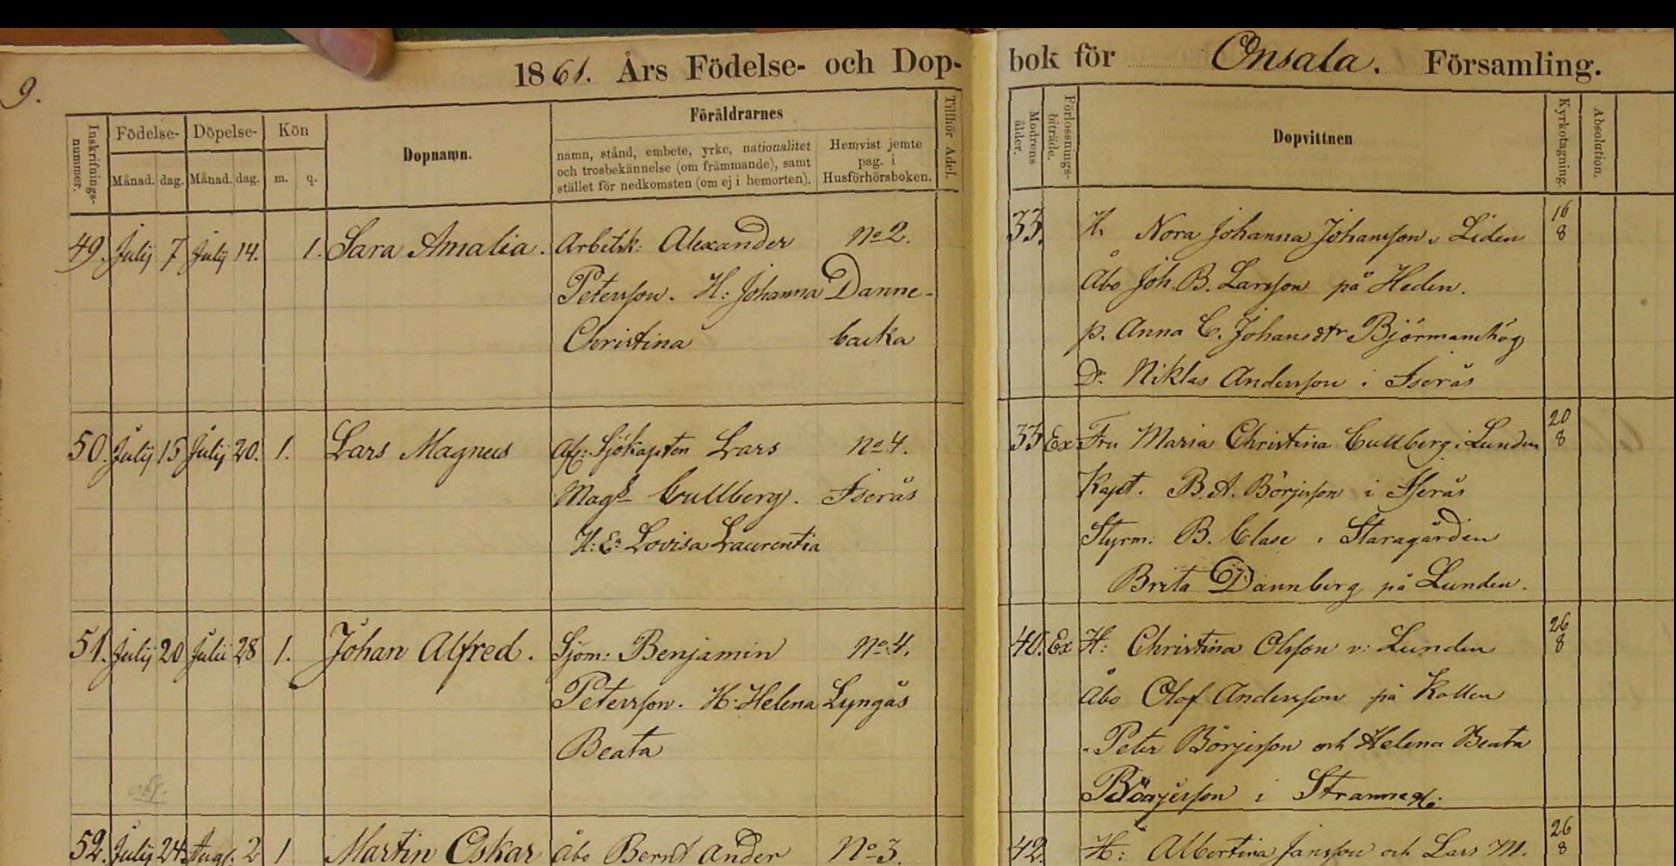 9.
1861. Års Födelse- och Dop-
bok för Onsala. Församling.
Inskrifnings-nummer.
Födelse-
Månad. dag.
Döpelse-
Månad. dag.
Kön
m. q.
Dopnamn.
Föräldrarnes
namn, stånd, embete, yrke, nationalitet
och trosbekännelse (om främmande), samt
stället för nedkomsten (om ej i hemorten).
Hemvist jemte
pag. i
Husförhörsboken.
Tillhör Adel.
Modrens ålder.
Förlossnings-biträde.
Dopvittnen
Kyrkotagning.
Absolution.
49. Julij 7 Julij 14. 1. Sara Amalia. Arbetsk: Alexander No 2.
Petersson. H: Johanna Danne-
Christina backa
33. H. Nora Johanna Johansson v Liden 16/8
Åbo Joh. B. Larsson på Heden.
p. Anna C. Johansdtr
Dr. Niklas Andersson i Iserås
50. Julij 15 Julij 20. 1. Lars Magnus Sjökapten Lars No 4.
Mags Cullberg. Iserås
H: E: Lovisa Laurentia
33 Ex Fru Maria Christina Cullberg i Lunden 20/8
Kapt. B. A. Börjesson i Iserås
Styrm: B. Clase i Staragården
Brita Dannberg på Lunden.
51. Julij 20 Julii 28 1. Johan Alfred. Sjöm: Benjamin No 4.
Petersson. H: Helena Lyngås
Beata
40. Ex H: Christina Olsson v: Lunden 26/8
Åbo Olof Andersson på Kullen
Peter Börjesson och Helena Beata
Börjesson i
52. Julij 24 Aug. 2 1 Martin Oskar Åbo Bernt Ander No 3.
42. H: Albertina Jansson och Lars M. 26/8